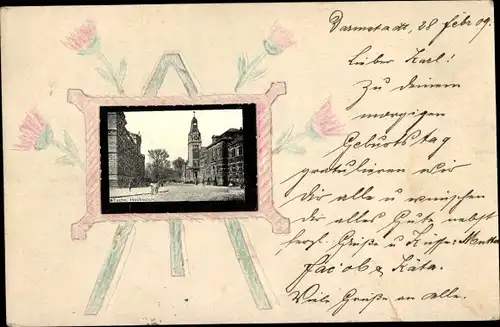 Darmstadt, 28 Febr 09.
Lieber Karl!
Zu deinem
morgigen
Geburtstag
gratulieren wir
Dir alle u wünschen
dir alles Gute nebst
herzl. Grüße u Küsse: Mutter
Jacob & Käta.
Viele Grüße an alle.
Techn. Hochschule